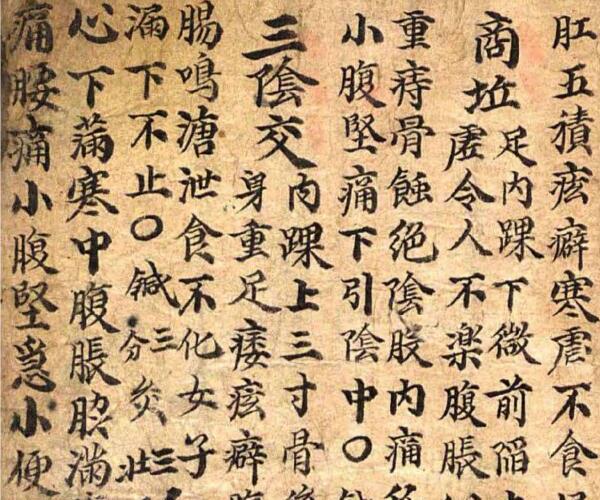 肛五積痃癖寒虐不食
商坵
足内踝下微前陷
虐令人不楽腹脹
重痔骨蝕絶陰股内痛
小腹堅痛下引陰中〇
三陰交
内踝上三寸骨
身重足痿痃癖
腸鳴溏泄食不化女子
漏下不止〇鍼三分灸三壮
心下満寒中腹脹脇満
痛腰痛小腹堅急小便